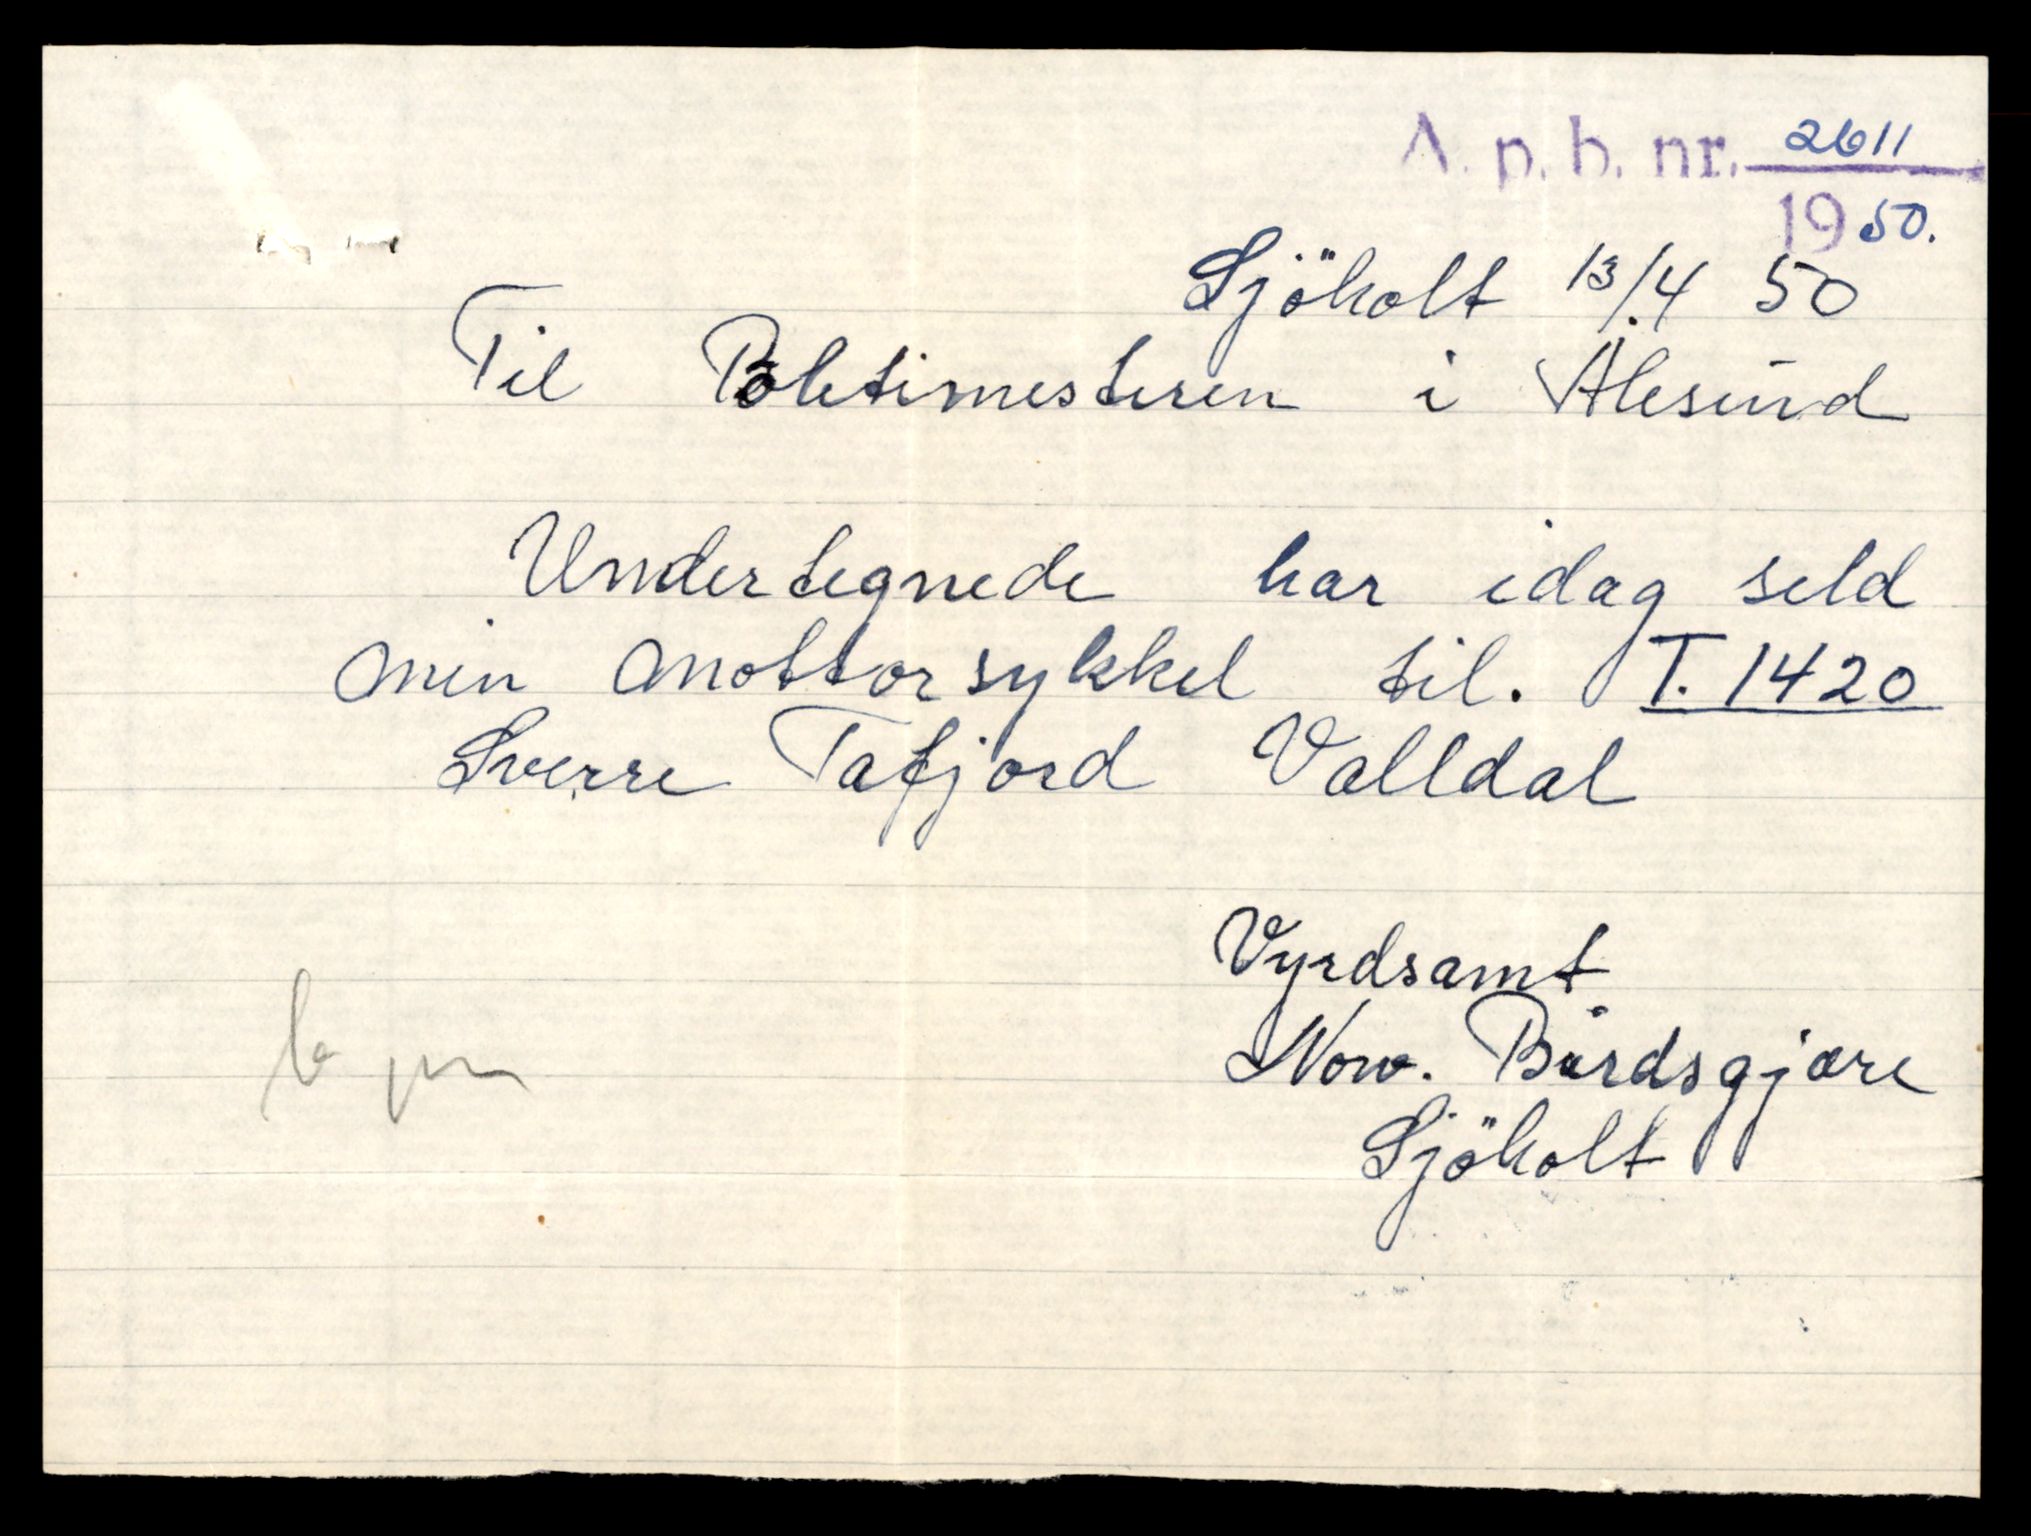 A. p. b. nr. 2611
1950.
Sjöholt 13/4 50
Til Poletimesteren i Ålesund
Undertegnede har idag seld
min mottorsykkel til. T. 1420
Sverre Tafjord Valldal
Vyrdsamt
Bårdsgjære
Sjöholt